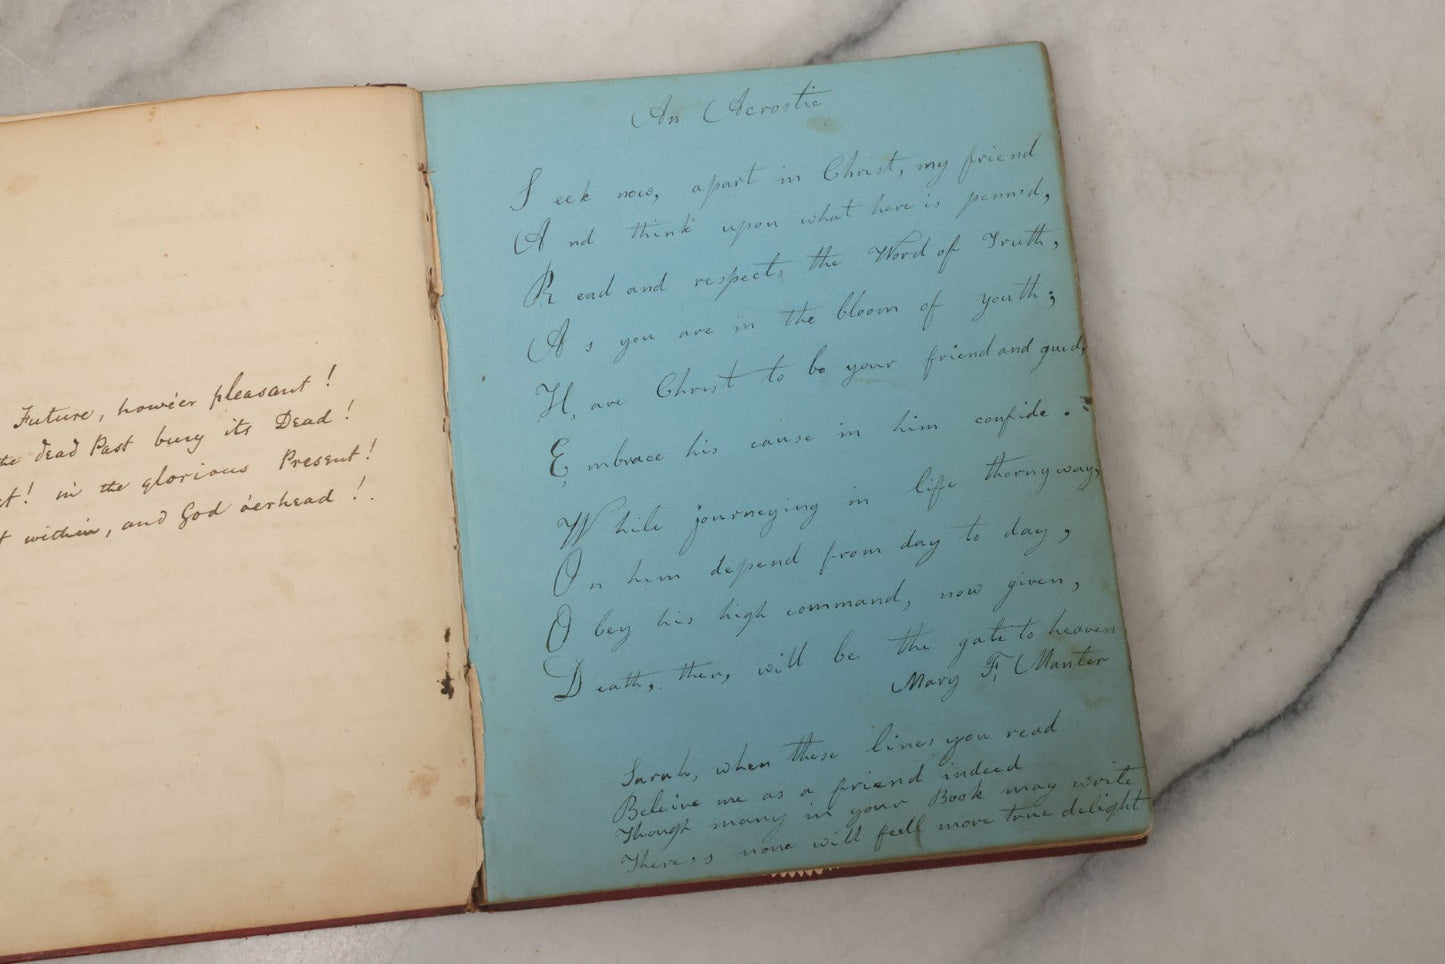 Future, howe'er pleasant!
the dead Past bury its Dead!
in the glorious Present!
within, and God o'erhead!
An Acrostic
Seek now, apart in Christ, my friend
And think upon what here is penned,
Read and respects the Word of Truth,
As you are in the bloom of youth;
H, are Christ to be your friend and guid,
Embrace his cause in him confide.
While journeying in life thorny way,
On him depend from day to day,
Obey his high command, now given,
Death, then, will be the gate to heaven
Mary F, Manter
Sarah, when these lines you read
Beleive me as a friend indeed
Though many in your Book may write
There,s none will feell more true delight